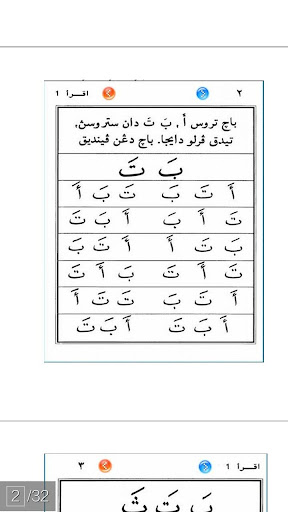 ٢ اقرأ 1
باچ تروس أ , بَ تَ دان ستروسڽ,
تيدق ڤرلو دايجا. باچ دڠن ڤينديق
بَ تَ
أَ تَ بَ تَ بَ أَ
تَ أَ بَ أَ بَ تَ
بَ تَ أَ أَ تَ بَ
تَ أَ تَ بَ أَ تَ
أَ تَ بَ تَ تَ أَ
أَ بَ تَ أَ بَ تَ
2 /32
اقرأ 1 ٣
بَ تَ ثَ